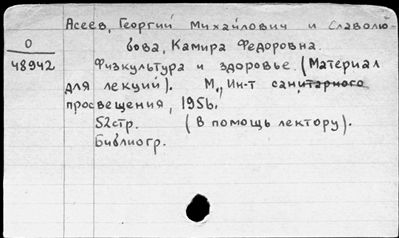 Асеев, Георгий Михайлович и Славолю-
бова, Камира Федоровна.
О
48942
Физкультура и здоровье. (Материал
для лекций). М., Ин-т санитарного
просвещения, 1956.
52стр. (В помощь лектору).
Библиогр.